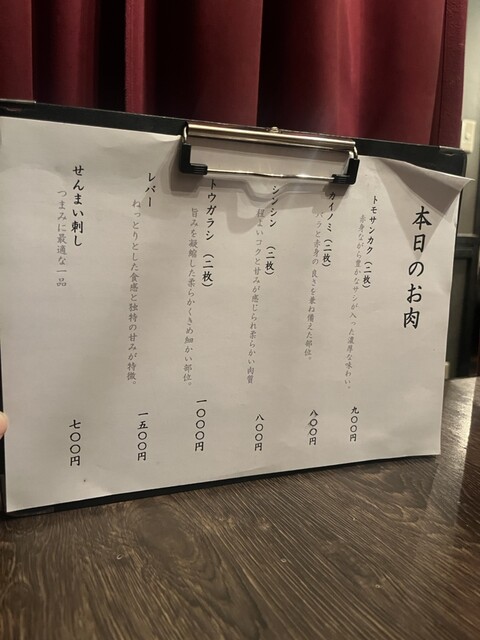 本日のお肉
トモサンカク（二枚）
赤身ながら豊かなサシが入った濃厚な味わい。
九〇〇円
カイノミ（二枚）
コクと赤身の良さを兼ね備えた部位。
八〇〇円
シンシン（二枚）
程よいコクと甘みが感じられ柔らかい肉質
八〇〇円
トウガラシ（二枚）
旨みを凝縮した柔らかくきめ細かい部位。
一〇〇〇円
レバー
ねっとりとした食感と独特の甘みが特徴。
一五〇〇円
せんまい刺し
つまみに最適な一品
七〇〇円